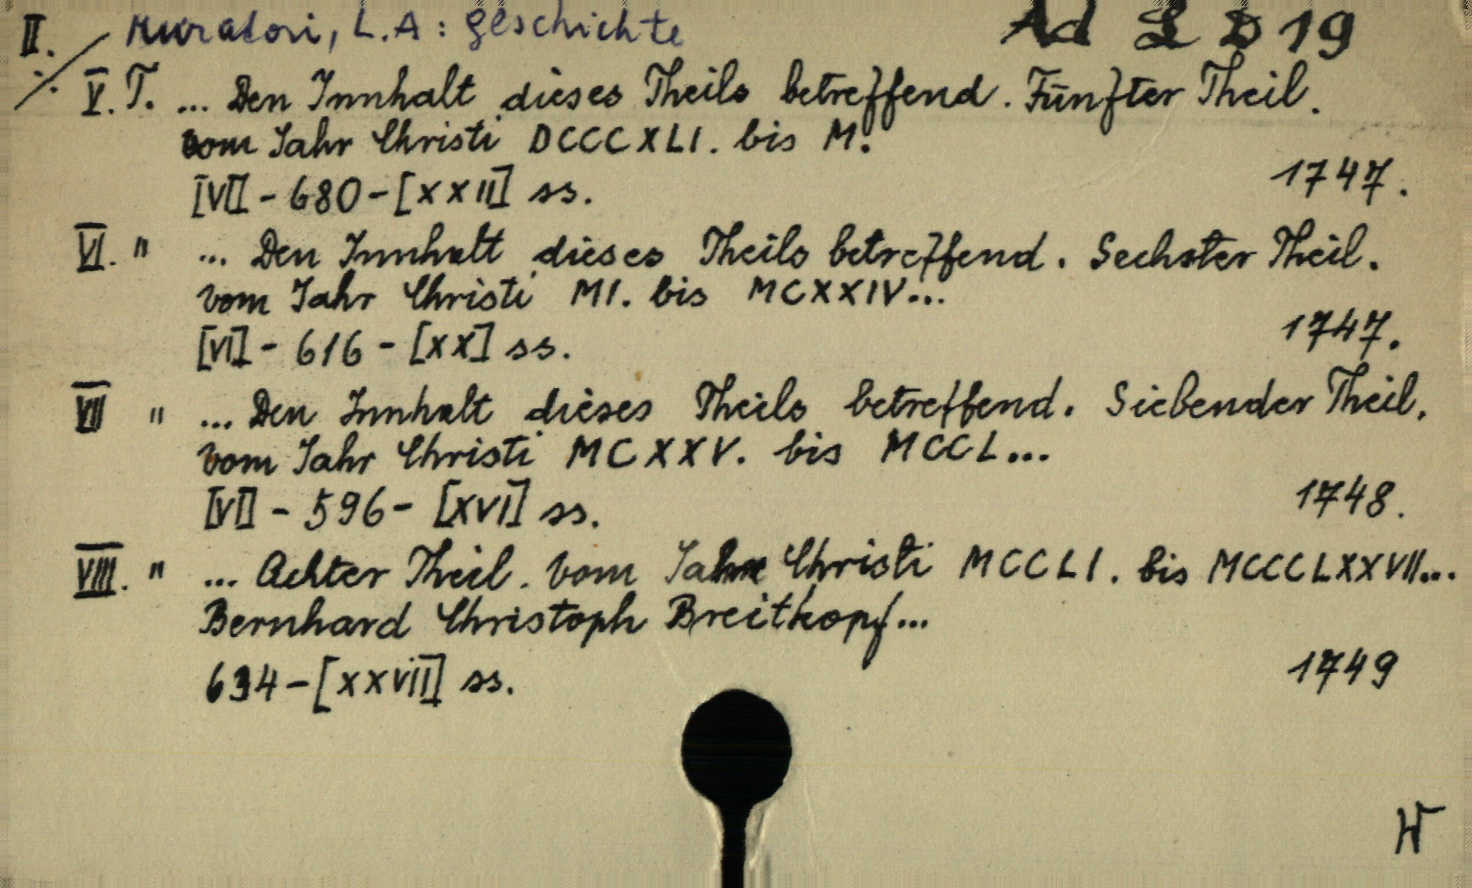 II. Muratori, L.A: Geschichte Ad L D 19
./.
V. T. ... Den Innhalt dieses Theils betreffend. Fünfter Theil.
vom Jahr Christi DCCCXLI. bis M.
[VI] - 680 - [XXII] ss. 1747.
VI. " ... Den Innhalt dieses Theils betreffend. Sechster Theil.
vom Jahr Christi MI. bis MCXXIV...
[VI] - 616 - [XX] ss. 1747.
VII " ... Den Innhalt dieses Theils betreffend. Siebender Theil.
vom Jahr Christi MCXXV. bis MCCL...
[VI] - 596 - [XVI] ss. 1748.
VIII. " ... Achter Theil. vom Jahr Christi MCCLI. bis MCCCLXXVII...
Bernhard Christoph Breitkopf...
634 - [XXVII] ss. 1749
W